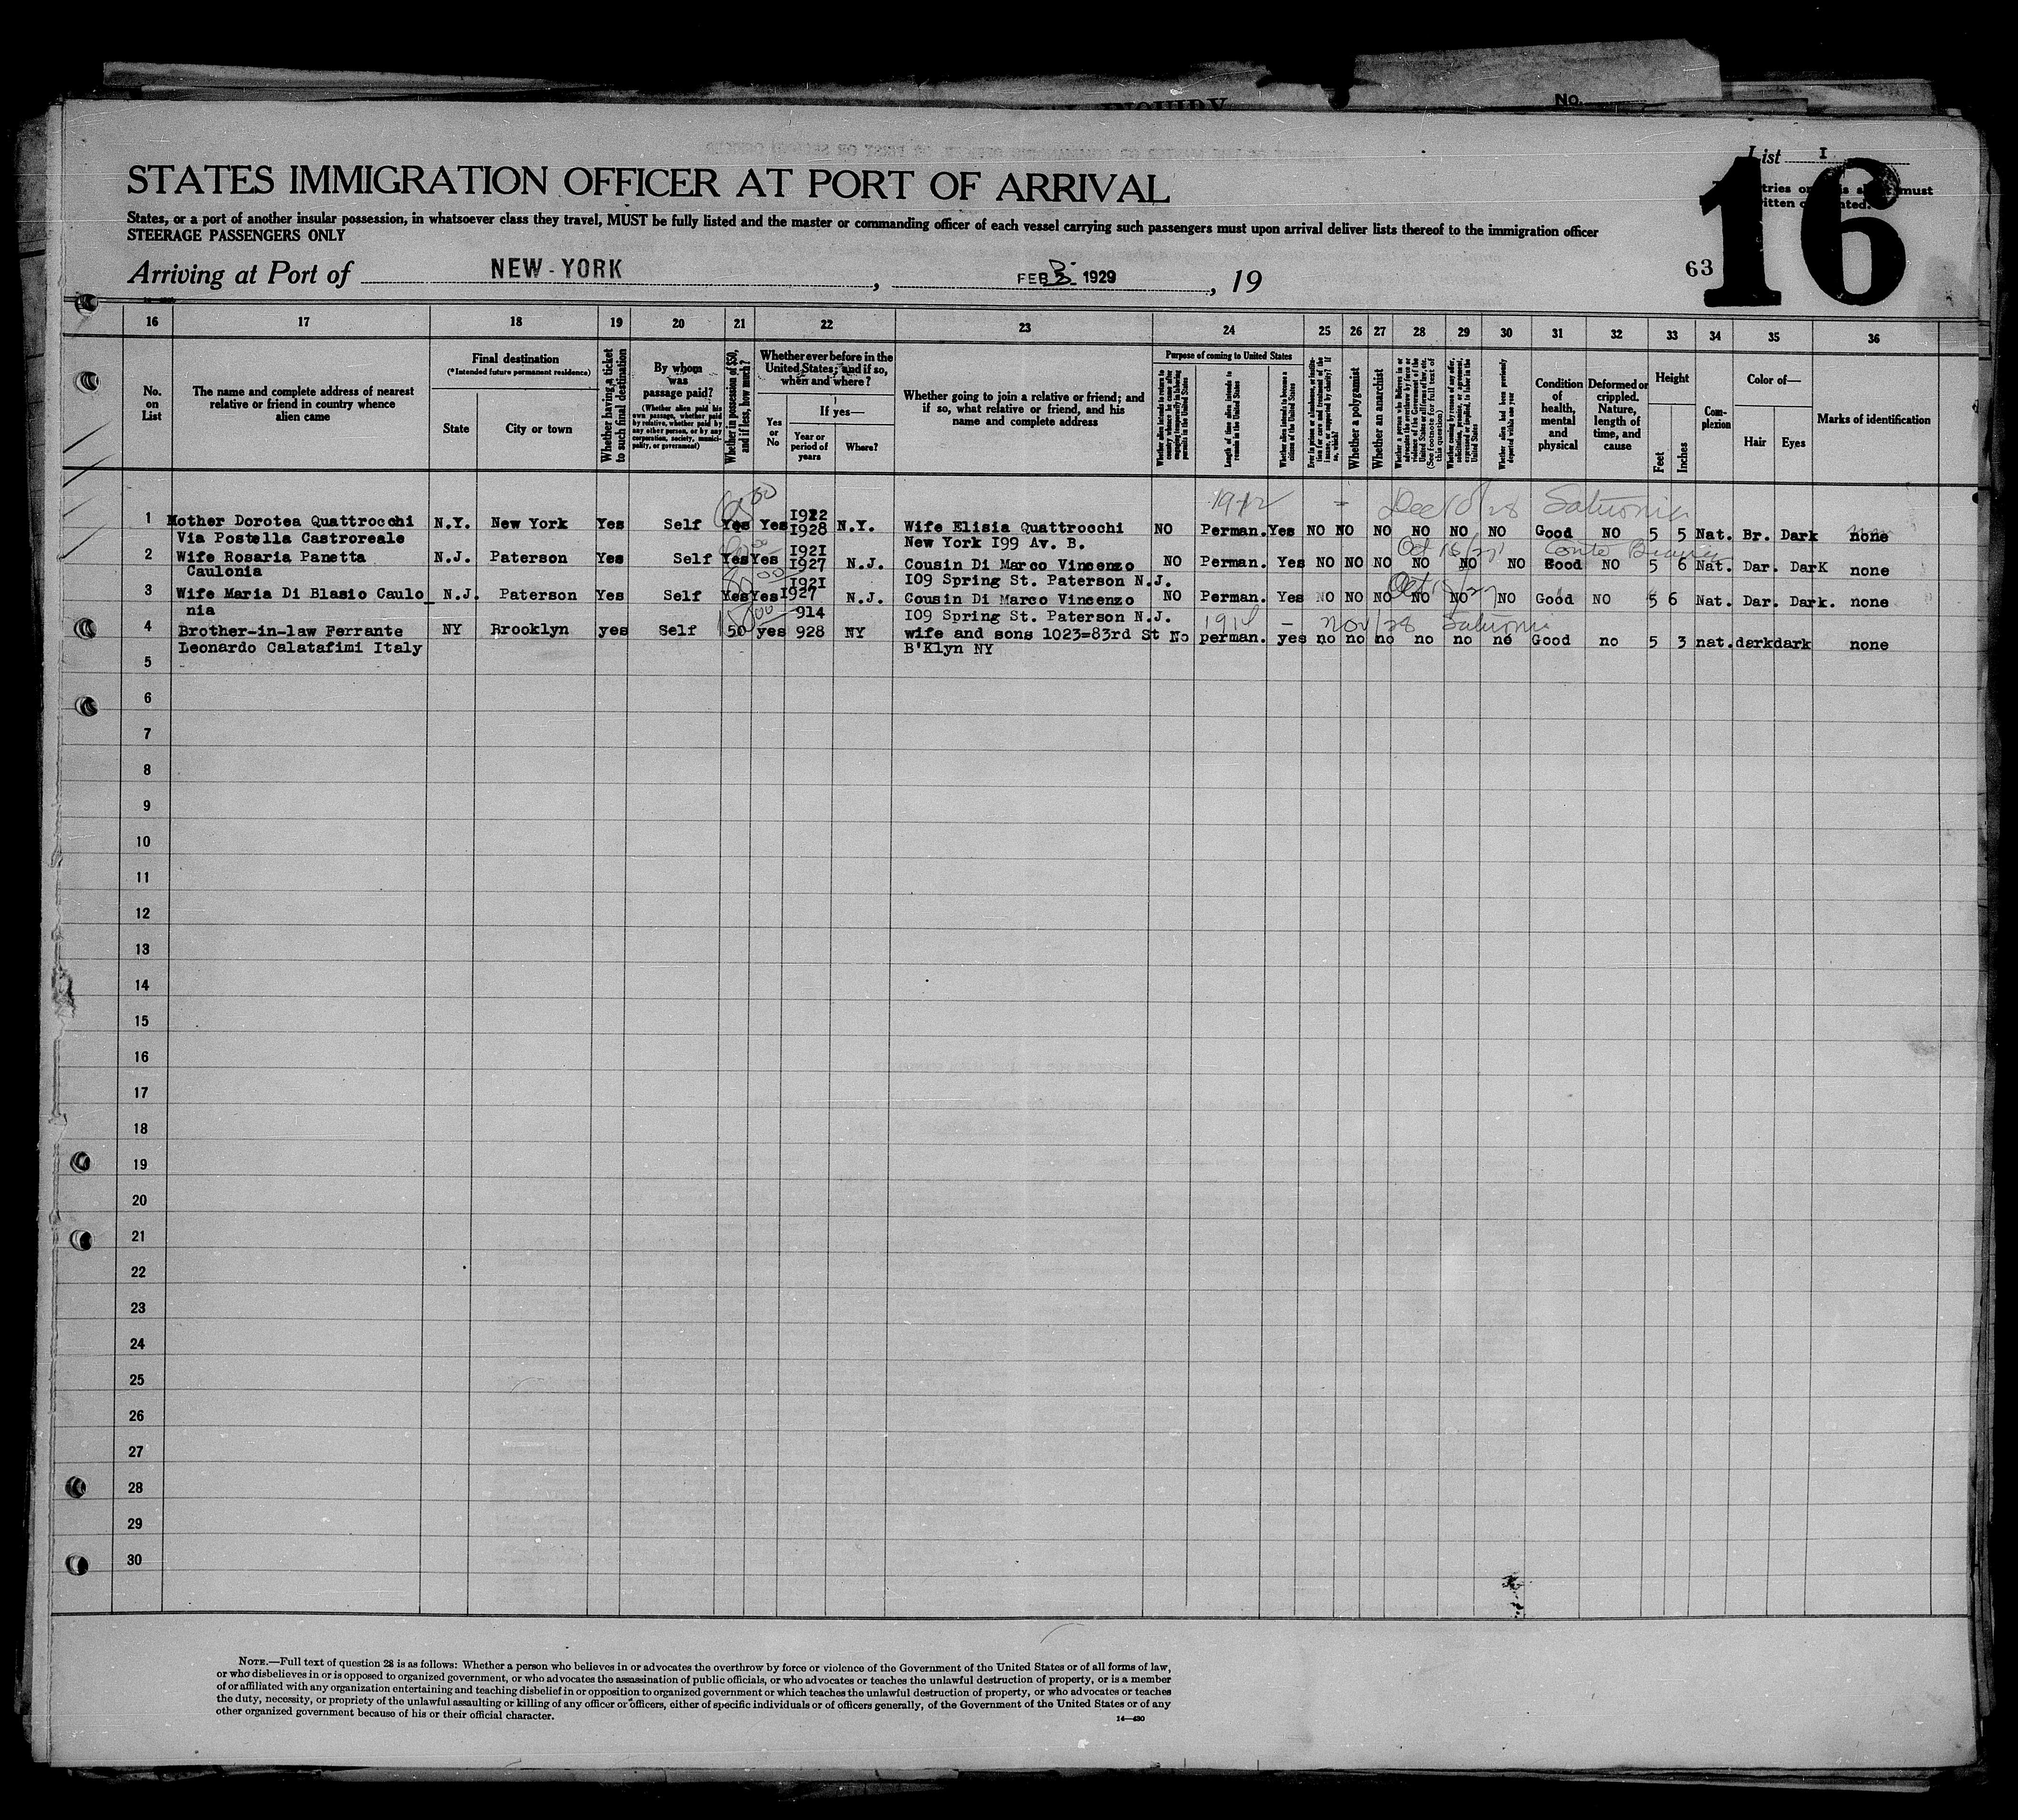 No.
List I
STATES IMMIGRATION OFFICER AT PORT OF ARRIVAL
16
States, or a port of another insular possession, in whatsoever class they travel, MUST be fully listed and the master or commanding officer of each vessel carrying such passengers must upon arrival deliver lists thereof to the immigration officer
STEERAGE PASSENGERS ONLY
Arriving at Port of NEW-YORK, FEB 1929, 19
63
16 17 18 19 20 21 22 23 24 25 26 27 28 29 30 31 32 33 34 35 36
No. on List
The name and complete address of nearest relative or friend in country whence alien came
Final destination
(*Intended future permanent residence)
State
City or town
Whether having a ticket to such final destination
By whom was passage paid?
(Whether alien paid his own passage, whether paid by relative, whether paid by any other person, or by any corporation, society, municipality, or government)
Whether in possession of $50, and if less, how much?
Whether ever before in the United States; and if so, when and where?
Yes or No
If yes—
Year or period of years
Where?
Whether going to join a relative or friend; and if so, what relative or friend, and his name and complete address
Purpose of coming to United States
Length of time alien intends to remain in the United States
Whether alien intends to become a citizen of the United States
Whether a polygamist
Whether an anarchist
Whether alien had been previously deported within one year
Condition of health, mental and physical
Deformed or crippled. Nature, length of time, and cause
Height
Feet
Inches
Complexion
Color of—
Hair
Eyes
Marks of identification
1912 - Dec 10/28 Saturnia
1 Mother Dorotea Quattrocchi N.Y. New York Yes Self Yes Yes I922 I928 N.Y. Wife Elisia Quattrocchi NO Perman. Yes NO NO NO NO NO NO Good NO 5 5 Nat. Br. Dark none
Via Postella Castroreale New York I99 Av. B.
Oct 15/27 Conte Biancamano
2 Wife Rosaria Panetta N.J. Paterson Yes Self Yes Yes I92I I927 N.J. Cousin Di Marco Vincenzo NO Perman. Yes NO NO NO NO NO NO Good NO 5 6 Nat. Dar. DarK none
Caulonia I09 Spring St. Paterson N.J.
Oct 15/27
3 Wife Maria Di Blasio Caulo_ N.J. Paterson Yes Self Yes Yes I92I I927 N.J. Cousin Di Marco Vincenzo NO Perman. Yes NO NO NO NO NO NO Good NO 5 6 Nat. Dar. Dark. none
nia I09 Spring St. Paterson N.J.
1914 - Nov/28 Saturnia
4 Brother-in-law Ferrante NY Brooklyn yes Self 50 yes 914 928 NY wife and sons 1023=83rd St No perman. yes no no no no no no Good no 5 3 nat. dark dark none
Leonardo Calatafimi Italy B'Klyn NY
5
6
7
8
9
10
11
12
13
14
15
16
17
18
19
20
21
22
23
24
25
26
27
28
29
30
NOTE.—Full text of question 28 is as follows: Whether a person who believes in or advocates the overthrow by force or violence of the Government of the United States or of all forms of law,
or who disbelieves in or is opposed to organized government, or who advocates the assassination of public officials, or who advocates or teaches the unlawful destruction of property, or is a member
of or affiliated with any organization entertaining and teaching disbelief in or opposition to organized government or which teaches the unlawful destruction of property, or who advocates or teaches
the duty, necessity, or propriety of the unlawful assaulting or killing of any officer or officers, either of specific individuals or of officers generally, of the Government of the United States or of any
other organized government because of his or their official character.
14—430